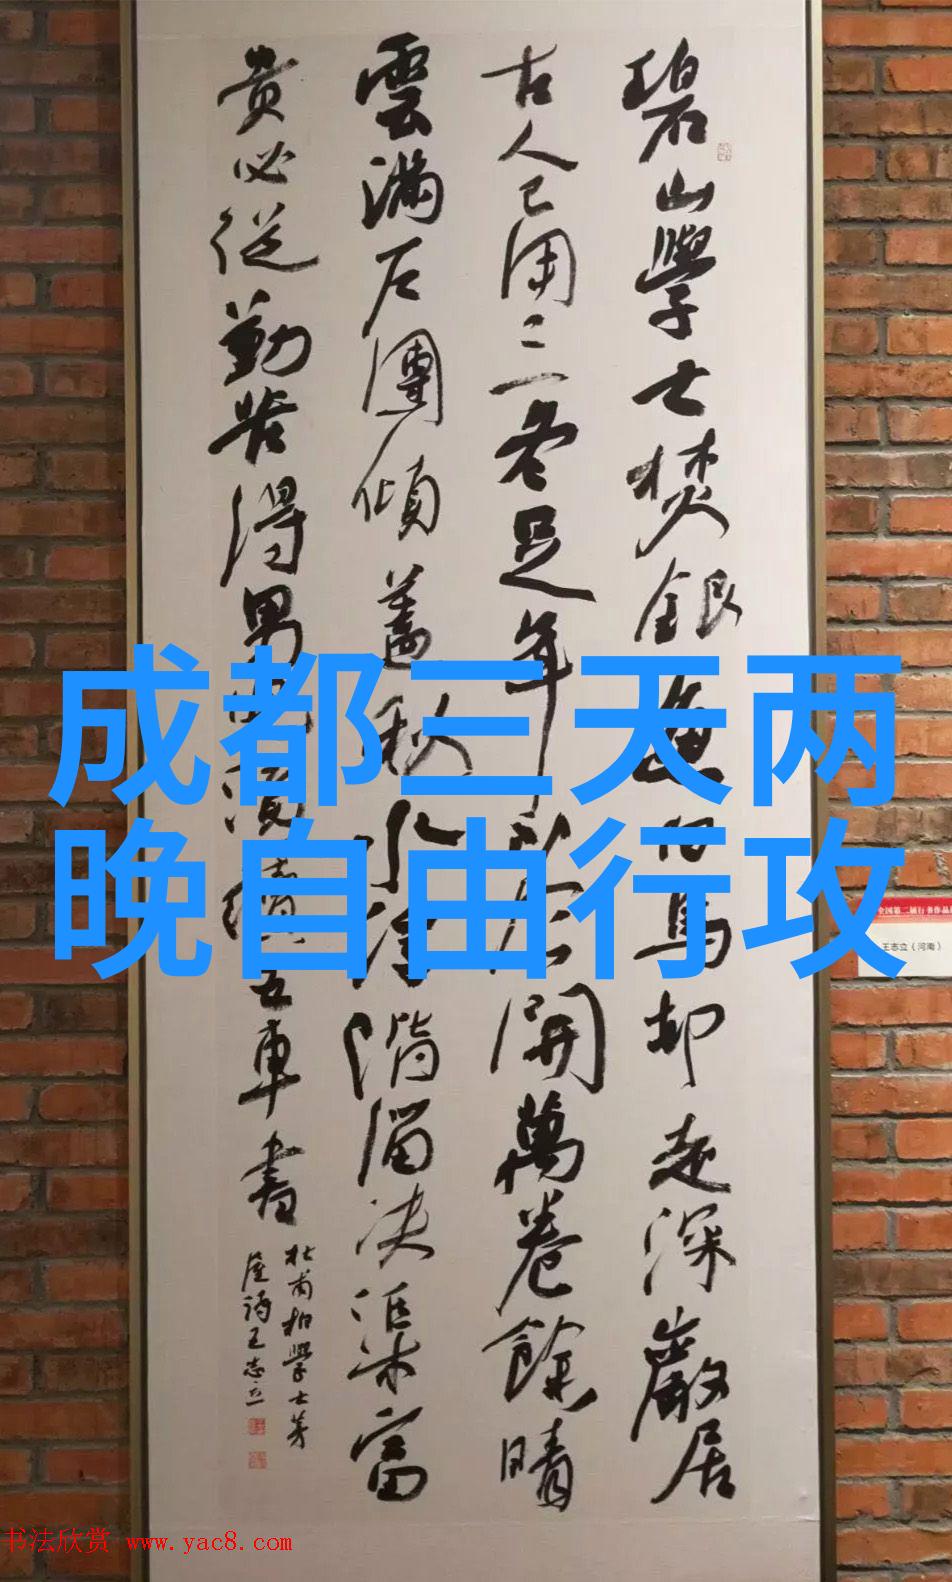 碧山學士焚銀魚白馬却走深巖居
古人已用三冬足年少今開萬卷餘晴
雲滿戶團傾蓋秋水浮階溜决渠富
貴必從勤苦得男兒須讀五車書
杜甫柏學士茅
屋詩王志立
成都三天两
晚自由行攻
全国第二届行书作品
王志立（河南）
书法欣赏 www.yac8.com